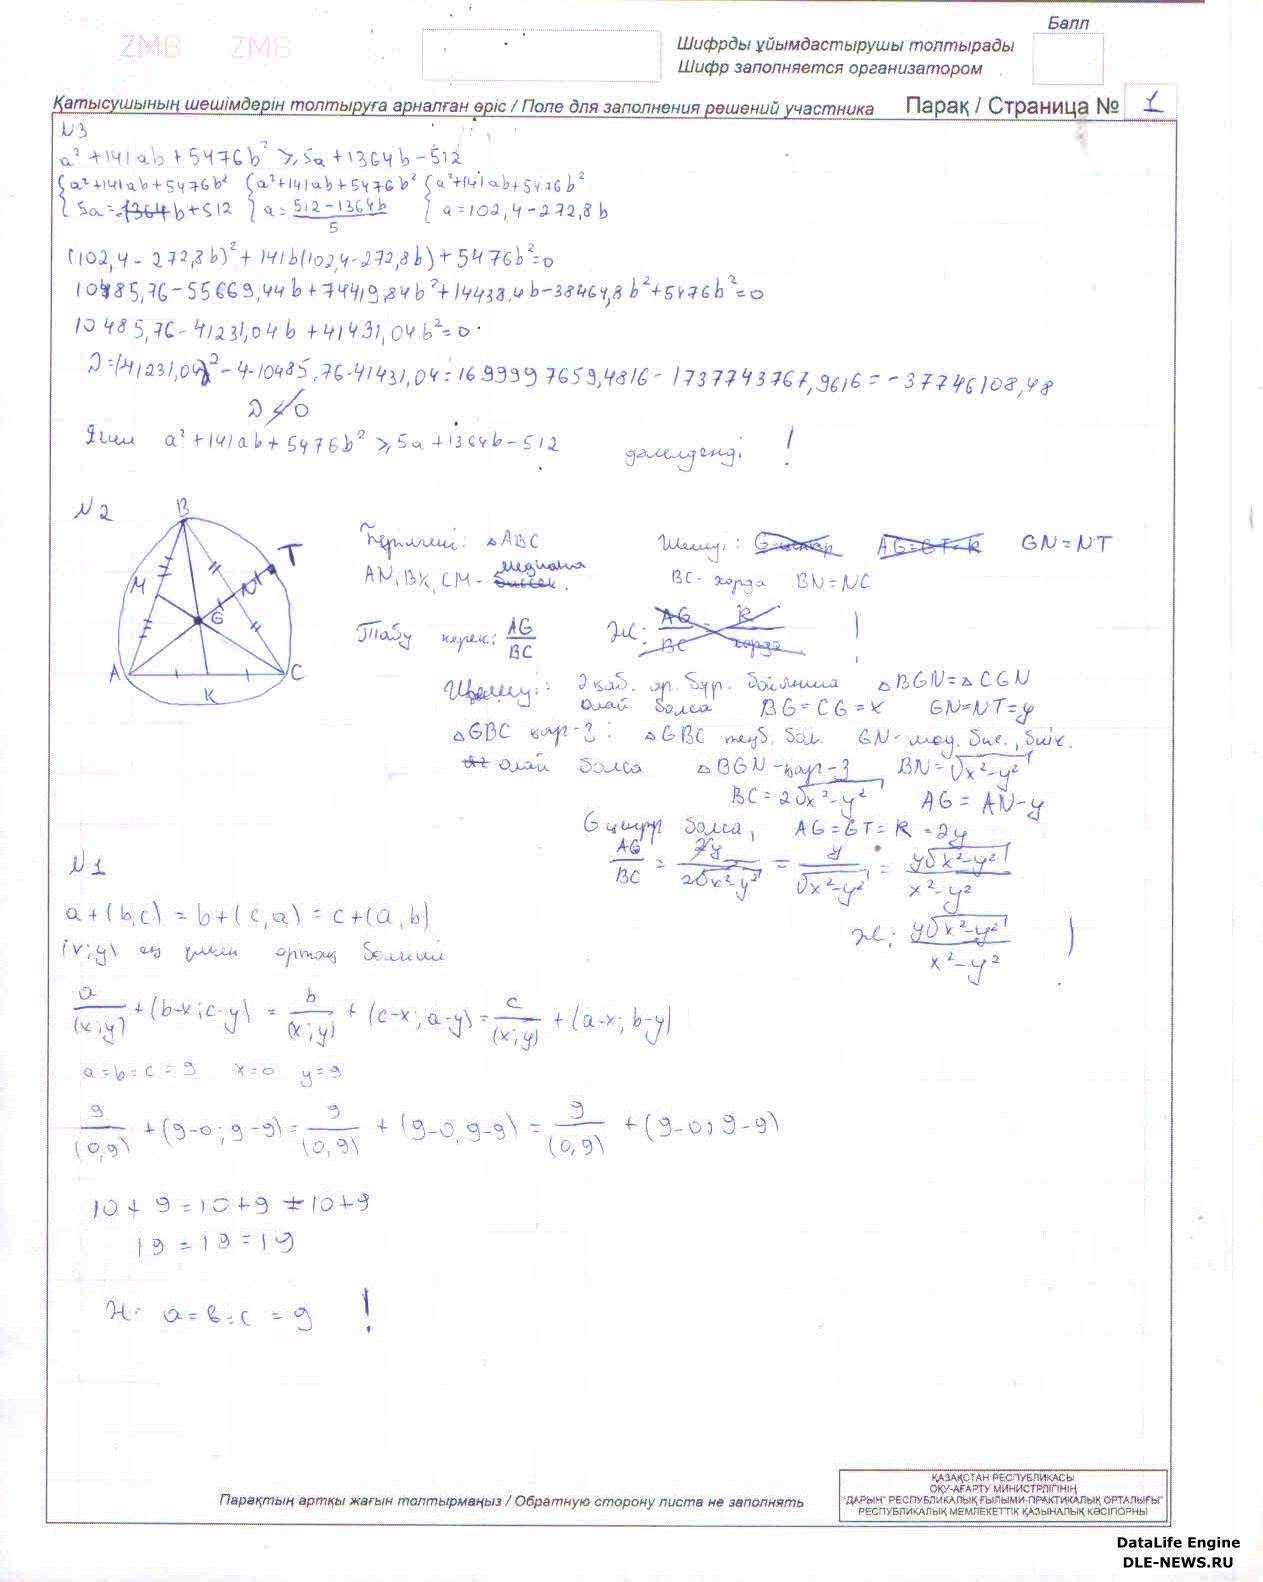 ZMB ZMB
Балл
Шифрды ұйымдастырушы толтырады
Шифр заполняется организатором
Қатысушының шешімдерін толтыруға арналған өріс / Поле для заполнения решений участника Парақ / Страница № 1
N3
a² + 141ab + 5476b² ⩾ 5a + 1364b − 512
{a² + 141ab + 5476b² {a² + 141ab + 5476b² {a² + 141ab + 5476b²
5a = −1364b + 512 a = (512 − 1364b)/5 a = 102,4 − 272,8b
(102,4 − 272,8b)² + 141b(102,4 − 272,8b) + 5476b² = 0
10485,76 − 55669,44b + 74419,84b² + 14438,4b − 38464,8b² + 5476b² = 0
10485,76 − 41231,04b + 41431,04b² = 0
D = (41231,04)² − 4·10485,76·41431,04 = 1699997659,4816 − 1737743767,9616 = −37746108,48
D < 0
Яғни a² + 141ab + 5476b² ⩾ 5a + 1364b − 512 дәлелденді !
N2
B T M N G A K C
Берілгені: △ABC Шешуі: GN = NT
AN, BK, CM - медиана BC - хорда BN = NC
Табу керек: AG/BC Ж: AG/BC = R/хорда !
Шешуі: 2 қаб. қр. бұр. бойынша △BGN = △CGN
олай болса BG = CG = x GN = NT = y
△GBC қар-з: △GBC теңб. бол. GN - мед. бис., биік.
олай болса △BGN - қар-з BN = √(x² − y²)
BC = 2√(x² − y²) AG = AN − y
G центр болса, AG = GT = R = 2y
AG/BC = 2y/(2√(x² − y²)) = y/√(x² − y²) = y√(x² − y²)/(x² − y²)
Ж: y√(x² − y²)/(x² − y²) )
N1
a + (b,c) = b + (c,a) = c + (a,b)
(x;y) ең үлкен ортақ бөлгіш
a/(x;y) + (b−x; c−y) = b/(x;y) + (c−x; a−y) = c/(x;y) + (a−x; b−y)
a = b = c = 9 x = 0 y = 9
9/(0,9) + (9−0; 9−9) = 9/(0,9) + (9−0, 9−9) = 9/(0,9) + (9−0; 9−9)
10 + 9 = 10 + 9 = 10 + 9
19 = 19 = 19
Ж: a = b = c = 9 !
Парақтың артқы жағын толтырмаңыз / Обратную сторону листа не заполнять
ҚАЗАҚСТАН РЕСПУБЛИКАСЫ
ОҚУ-АҒАРТУ МИНИСТРЛІГІНІҢ
"ДАРЫН" РЕСПУБЛИКАЛЫҚ ҒЫЛЫМИ-ПРАКТИКАЛЫҚ ОРТАЛЫҒЫ"
РЕСПУБЛИКАЛЫҚ МЕМЛЕКЕТТІК ҚАЗЫНАЛЫҚ КӘСІПОРНЫ
DataLife Engine
DLE-NEWS.RU